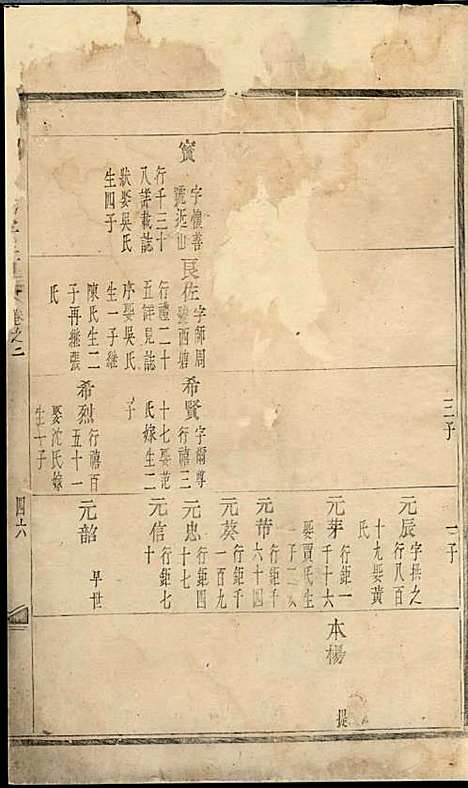 三子
寳
字懷善
號近山
行千三十
八諾載誌
狀娶吳氏
生四子
良佐
字師周
號西塘
行禮二十
五詳見誌
序娶吳氏
生一子繼
陳氏生二
子再繼張
氏
希賢
字爾尊
行禧三
十七娶范
氏嫁生二
子
希烈
行禧百
五十一
娶沈氏嫁
生一子
元辰
字揆之
行八百
十九娶黄
氏
元芽
行鉅一
千十六
娶賈氏生
一子
元芾
行鉅千
六十四
元葵
行鉅千
一百九
元忠
行鉅四
十七
元信
行鉅七
十
元韶
早世
本楊
卷之二
四六